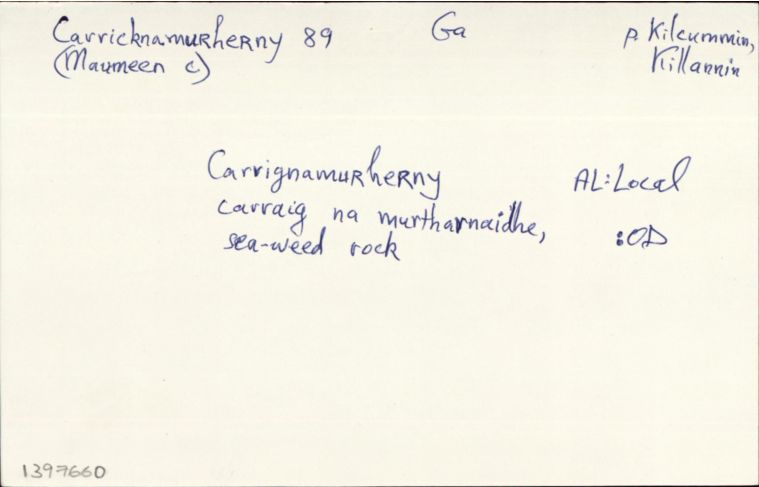 Carricknamurherny 89 Ga p. Kilcummin,
(Maumeen c) Killannin
Carrignamurherny AL:Local
carraig na murtharnaidhe, :OD
sea-weed rock
1397660